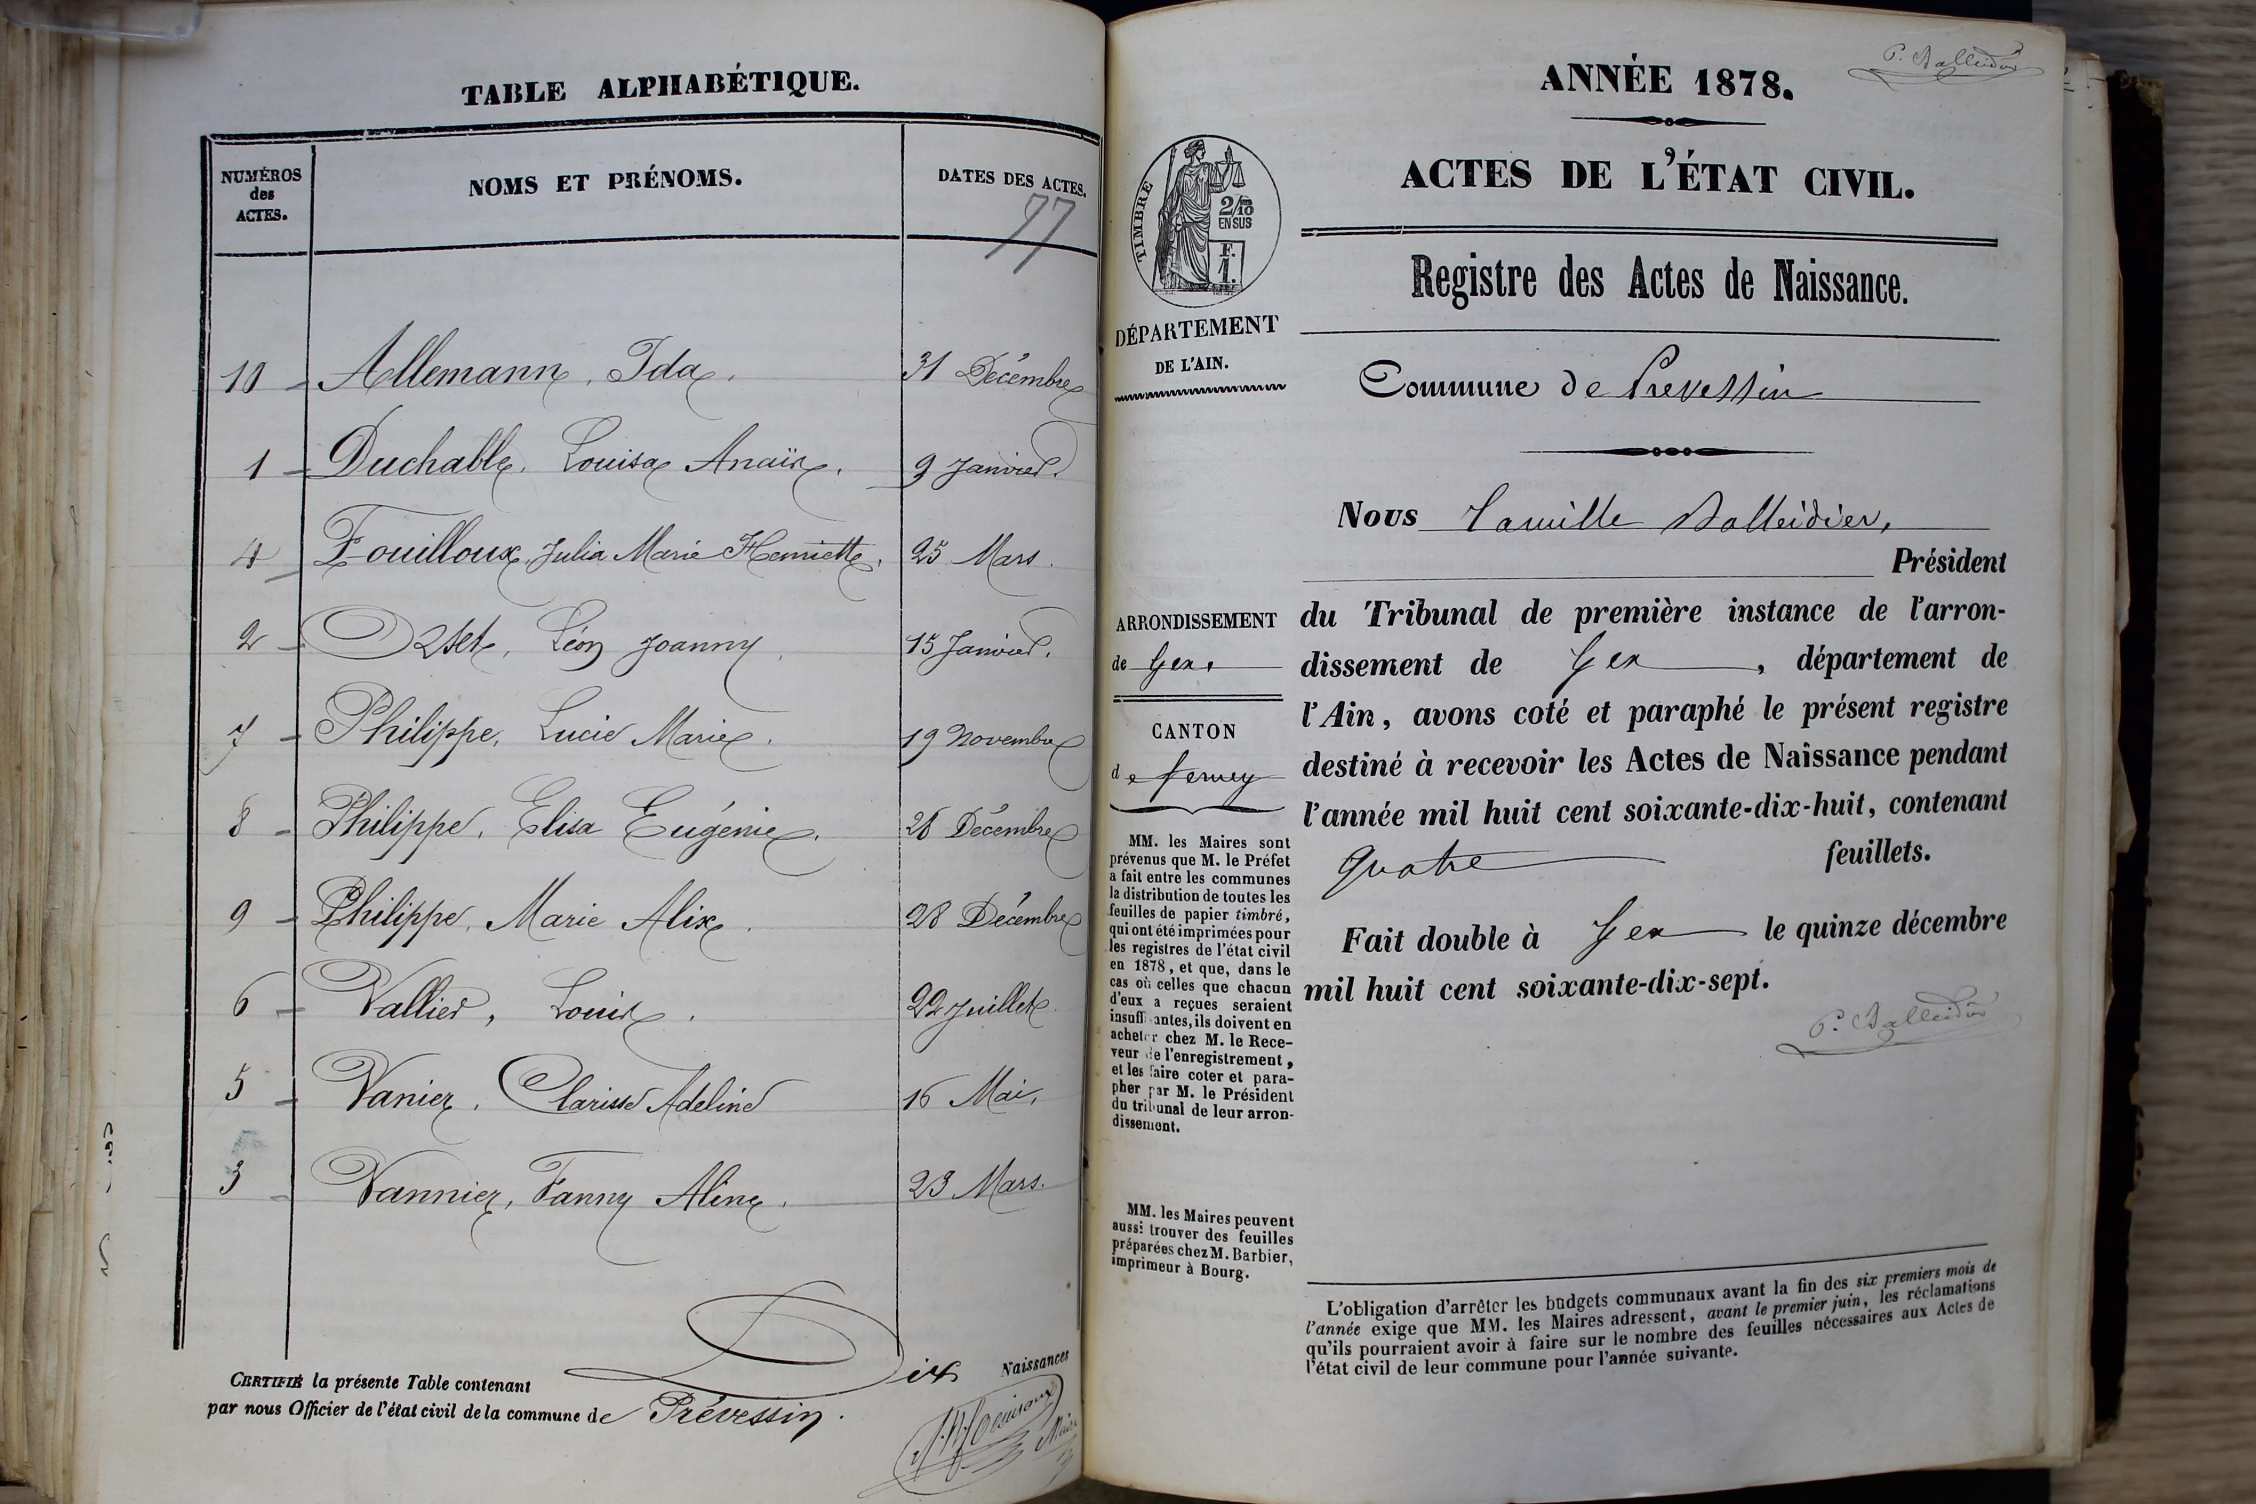 TABLE ALPHABÉTIQUE.
NUMÉROS des ACTES.
NOMS ET PRÉNOMS.
DATES DES ACTES.
77
10 Allemann, Ida. 31 Décembre
1 Duchable, Louisa Anaïs. 9 Janvier.
4 Fouilloux, Julia Marie Henriette. 25 Mars.
2 Léon Joanny. 15 Janvier.
7 Philippe, Lucie Marie. 19 Novembre
8 Philippe, Elisa Eugénie. 26 Décembre
9 Philippe, Marie Alix. 28 Décembre
6 Vallier, Louis. 22 Juillet.
5 Vanier, Clarisse Adeline 16 Mai.
3 Vannier, Fanny Aline. 23 Mars.
CERTIFIÉ la présente Table contenant Dix Naissances
par nous Officier de l'état civil de la commune de Prévessin.
Maire
ANNÉE 1878.
ACTES DE L'ÉTAT CIVIL.
Registre des Actes de Naissance.
TIMBRE
2/10 EN SUS
F. 1.
DÉPARTEMENT
DE L'AIN.
Commune de Prevessin
Nous Camille Balleidier,
Président
du Tribunal de première instance de l'arron-
dissement de Gex, département de
l'Ain, avons coté et paraphé le présent registre
destiné à recevoir les Actes de Naissance pendant
l'année mil huit cent soixante-dix-huit, contenant
quatre feuillets.
Fait double à Gex le quinze décembre
mil huit cent soixante-dix-sept.
C. Balleidier
ARRONDISSEMENT
de Gex.
CANTON
de ferney
MM. les Maires sont
prévenus que M. le Préfet
a fait entre les communes
la distribution de toutes les
feuilles de papier timbré,
qui ont été imprimées pour
les registres de l'état civil
en 1878, et que, dans le
cas où celles que chacun
d'eux a reçues seraient
insuffisantes, ils doivent en
acheter chez M. le Rece-
veur de l'enregistrement,
et les faire coter et para-
pher par M. le Président
du tribunal de leur arron-
dissement.
MM. les Maires peuvent
aussi trouver des feuilles
préparées chez M. Barbier,
imprimeur à Bourg.
L'obligation d'arrêter les budgets communaux avant la fin des six premiers mois de
l'année exige que MM. les Maires adressent, avant le premier juin, les réclamations
qu'ils pourraient avoir à faire sur le nombre des feuilles nécessaires aux Actes de
l'état civil de leur commune pour l'année suivante.